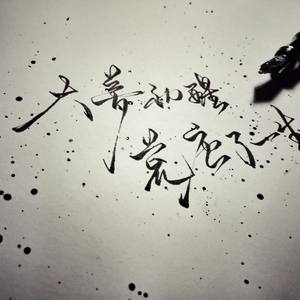 大梦初醒
荒唐了一生